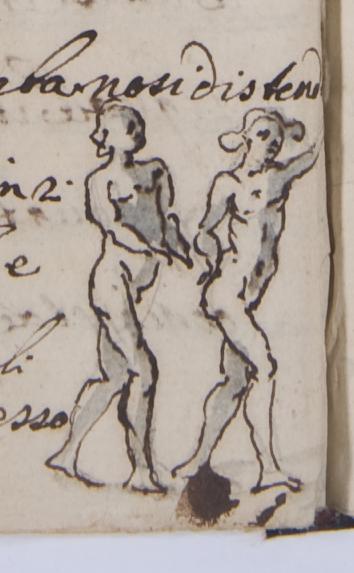 bar nosi distend
in 2
e
li
esso